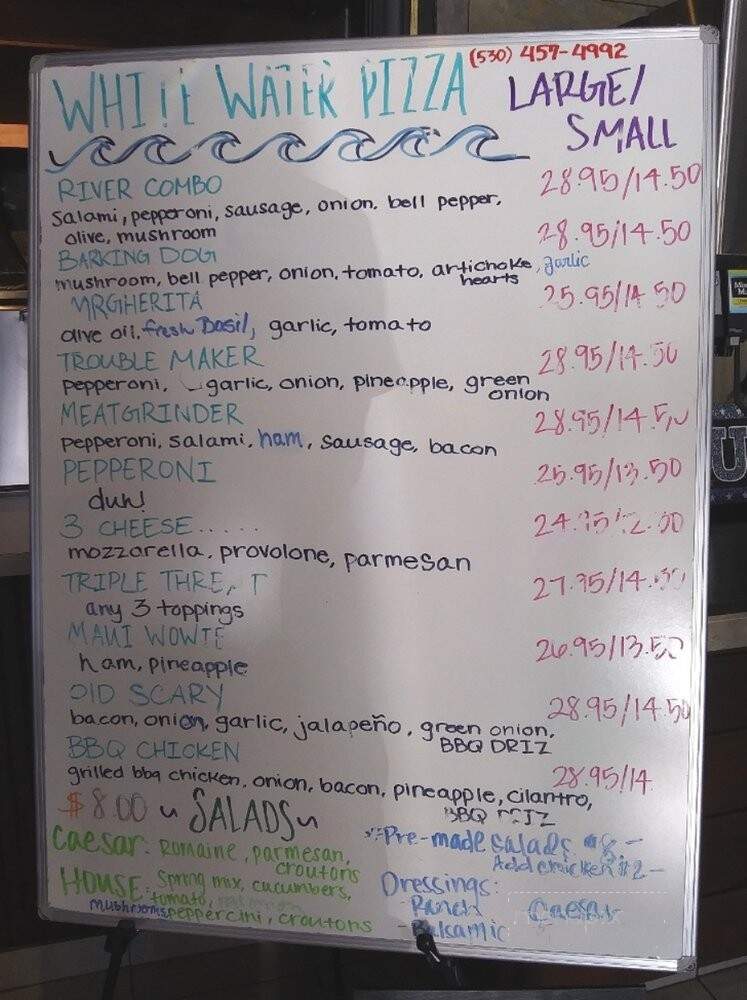 (530) 457-4992
WHITE WATER PIZZA LARGE/
SMALL
RIVER COMBO 28.95/14.50
Salami, pepperoni, sausage, onion, bell pepper,
olive, mushroom
BARKING DOG 28.95/14.50
mushroom, bell pepper, onion, tomato, artichoke, garlic
hearts
MRGHERITA 25.95/14 50
olive oil, fresh Basil, garlic, tomato
TROUBLE MAKER 28.95/14.50
pepperoni, garlic, onion, pineapple, green
onion
MEATGRINDER 28.95/14.50
pepperoni, salami, ham, sausage, bacon
PEPPERONI 25.95/13.50
duh!
3 CHEESE.....
mozzarella, provolone, parmesan
TRIPLE THRE T 27.95/14.50
any 3 toppings
MAUI WOWIE 26.95/13.50
ham, pineapple
OlD SCARY 28.95/14.50
bacon, onion, garlic, jalapeño, green onion,
BBQ DRIZ
BBQ CHICKEN 28.95/14
grilled bbq chicken, onion, bacon, pineapple, cilantro,
BBQ DRIZ
$8.00 ~ SALADS ~
Caesar: Romaine, parmesan,
croutons
HOUSE: Spring mix, cucumbers,
tomato,
mushrooms, peppercini, croutons
*Pre-made salads $8-
Add chicken $2-
Dressings:
- Ranch Caesar
- Balsamic